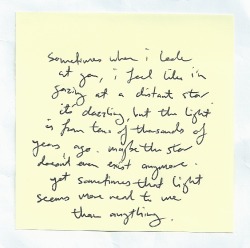 sometimes when i look
at you, i feel like i'm
gazing at a distant star.
it's dazzling, but the light
is from tens of thousands of
years ago. maybe the star
doesn't even exist anymore.
yet sometimes that light
seems more real to me
than anything.